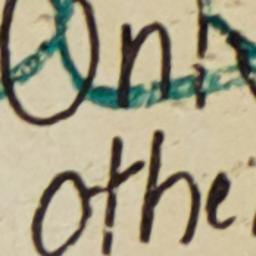 On
othe